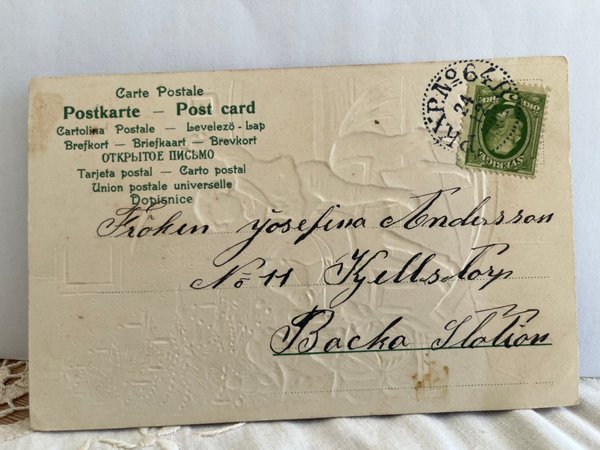 Carte Postale
Postkarte — Post card
Cartolina Postale — Levelező-Lap
Brefkort — Briefkaart — Brevkort
ОТКРЫТОЕ ПИСЬМО
Tarjeta postal — Carto postal
Union postale universelle
Dopisnice
PKXP. No 64
24
SVERIGE
Fröken Josefina Andersson
No 11 Kjellstorp
Backa Station